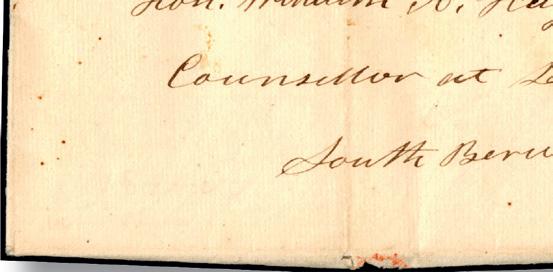 Hon. William A. Hay
Counsellor at L
South Berw